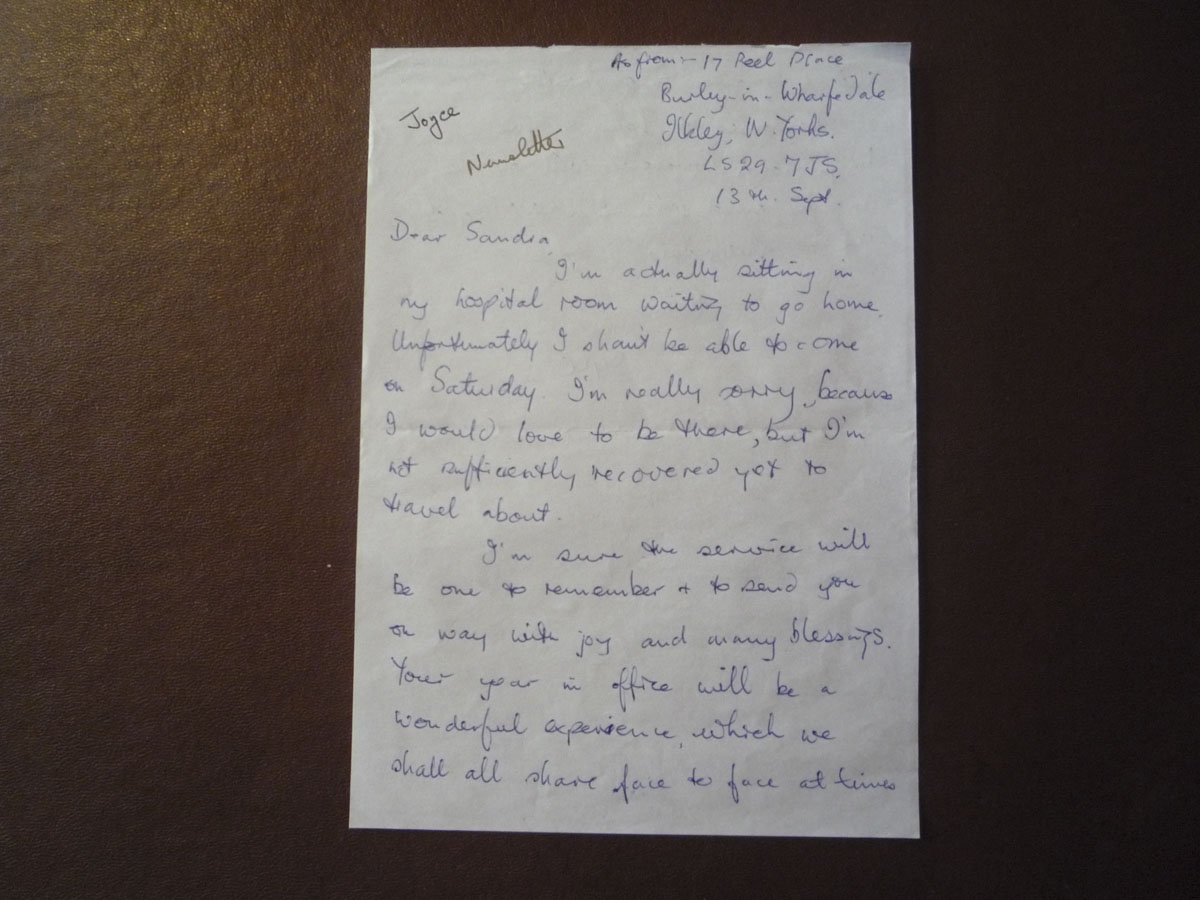 As from:- 17 Peel Place
Burley-in-Wharfedale
Ilkley, W. Yorks.
LS29 7JS.
13th. Sept.
Joyce
Newsletter
Dear Sandra,
I'm actually sitting in
my hospital room waiting to go home.
Unfortunately I shan't be able to come
on Saturday. I'm really sorry, because
I would love to be there, but I'm
not sufficiently recovered yet to
travel about.
I'm sure the service will
be one to remember & to send you
on way with joy and many blessings.
Your year in office will be a
wonderful experience, which we
shall all share face to face at times